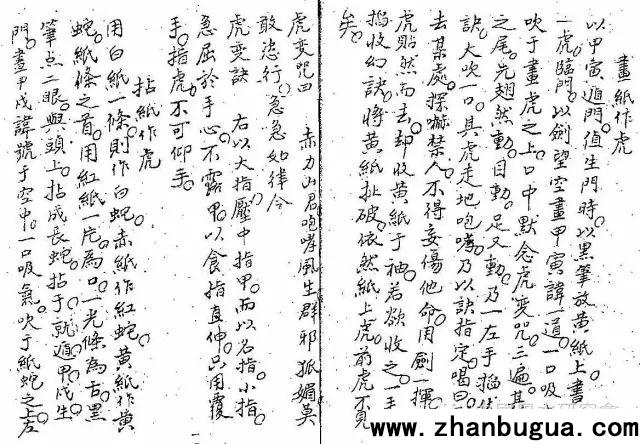 畫紙作虎
以甲寅遁門值生門時以黑筆放黃紙上書
一虎臨門以劍望空畫甲寅諱一道一口吸
吹于畫虎之上口中默念虎變咒三遍其
之尾先翅然動目動足又動乃一左手掐
訣大吹一口其虎走地咆哮乃以訣指定喝曰
去某處探嚇禁人不得妄傷他命用劍一揮
虎貼然而去却收黃紙于袖若欲收之一手
掐收幻訣將黃紙扯破依然紙上虎前虎不見
矣
虎變咒曰 赤力山君咆哮風生群邪孤媚莫
敢恣行 急急如律令
虎變訣 右以大指壓中指甲而以名指小指
急屈於手心不露甲以食指直伸只用覆
手指虎不可仰手
拈紙作虎
用白紙一條則作白蛇赤紙作紅蛇黃紙作黃
蛇紙條之首用紅紙一片為口一光條為舌黑
筆点二眼與頭上拈成長蛇拈于就遁甲戊生
門畫甲戊諱號于空中一口吸氣吹于紙蛇之上左
www.zhanbugua.com